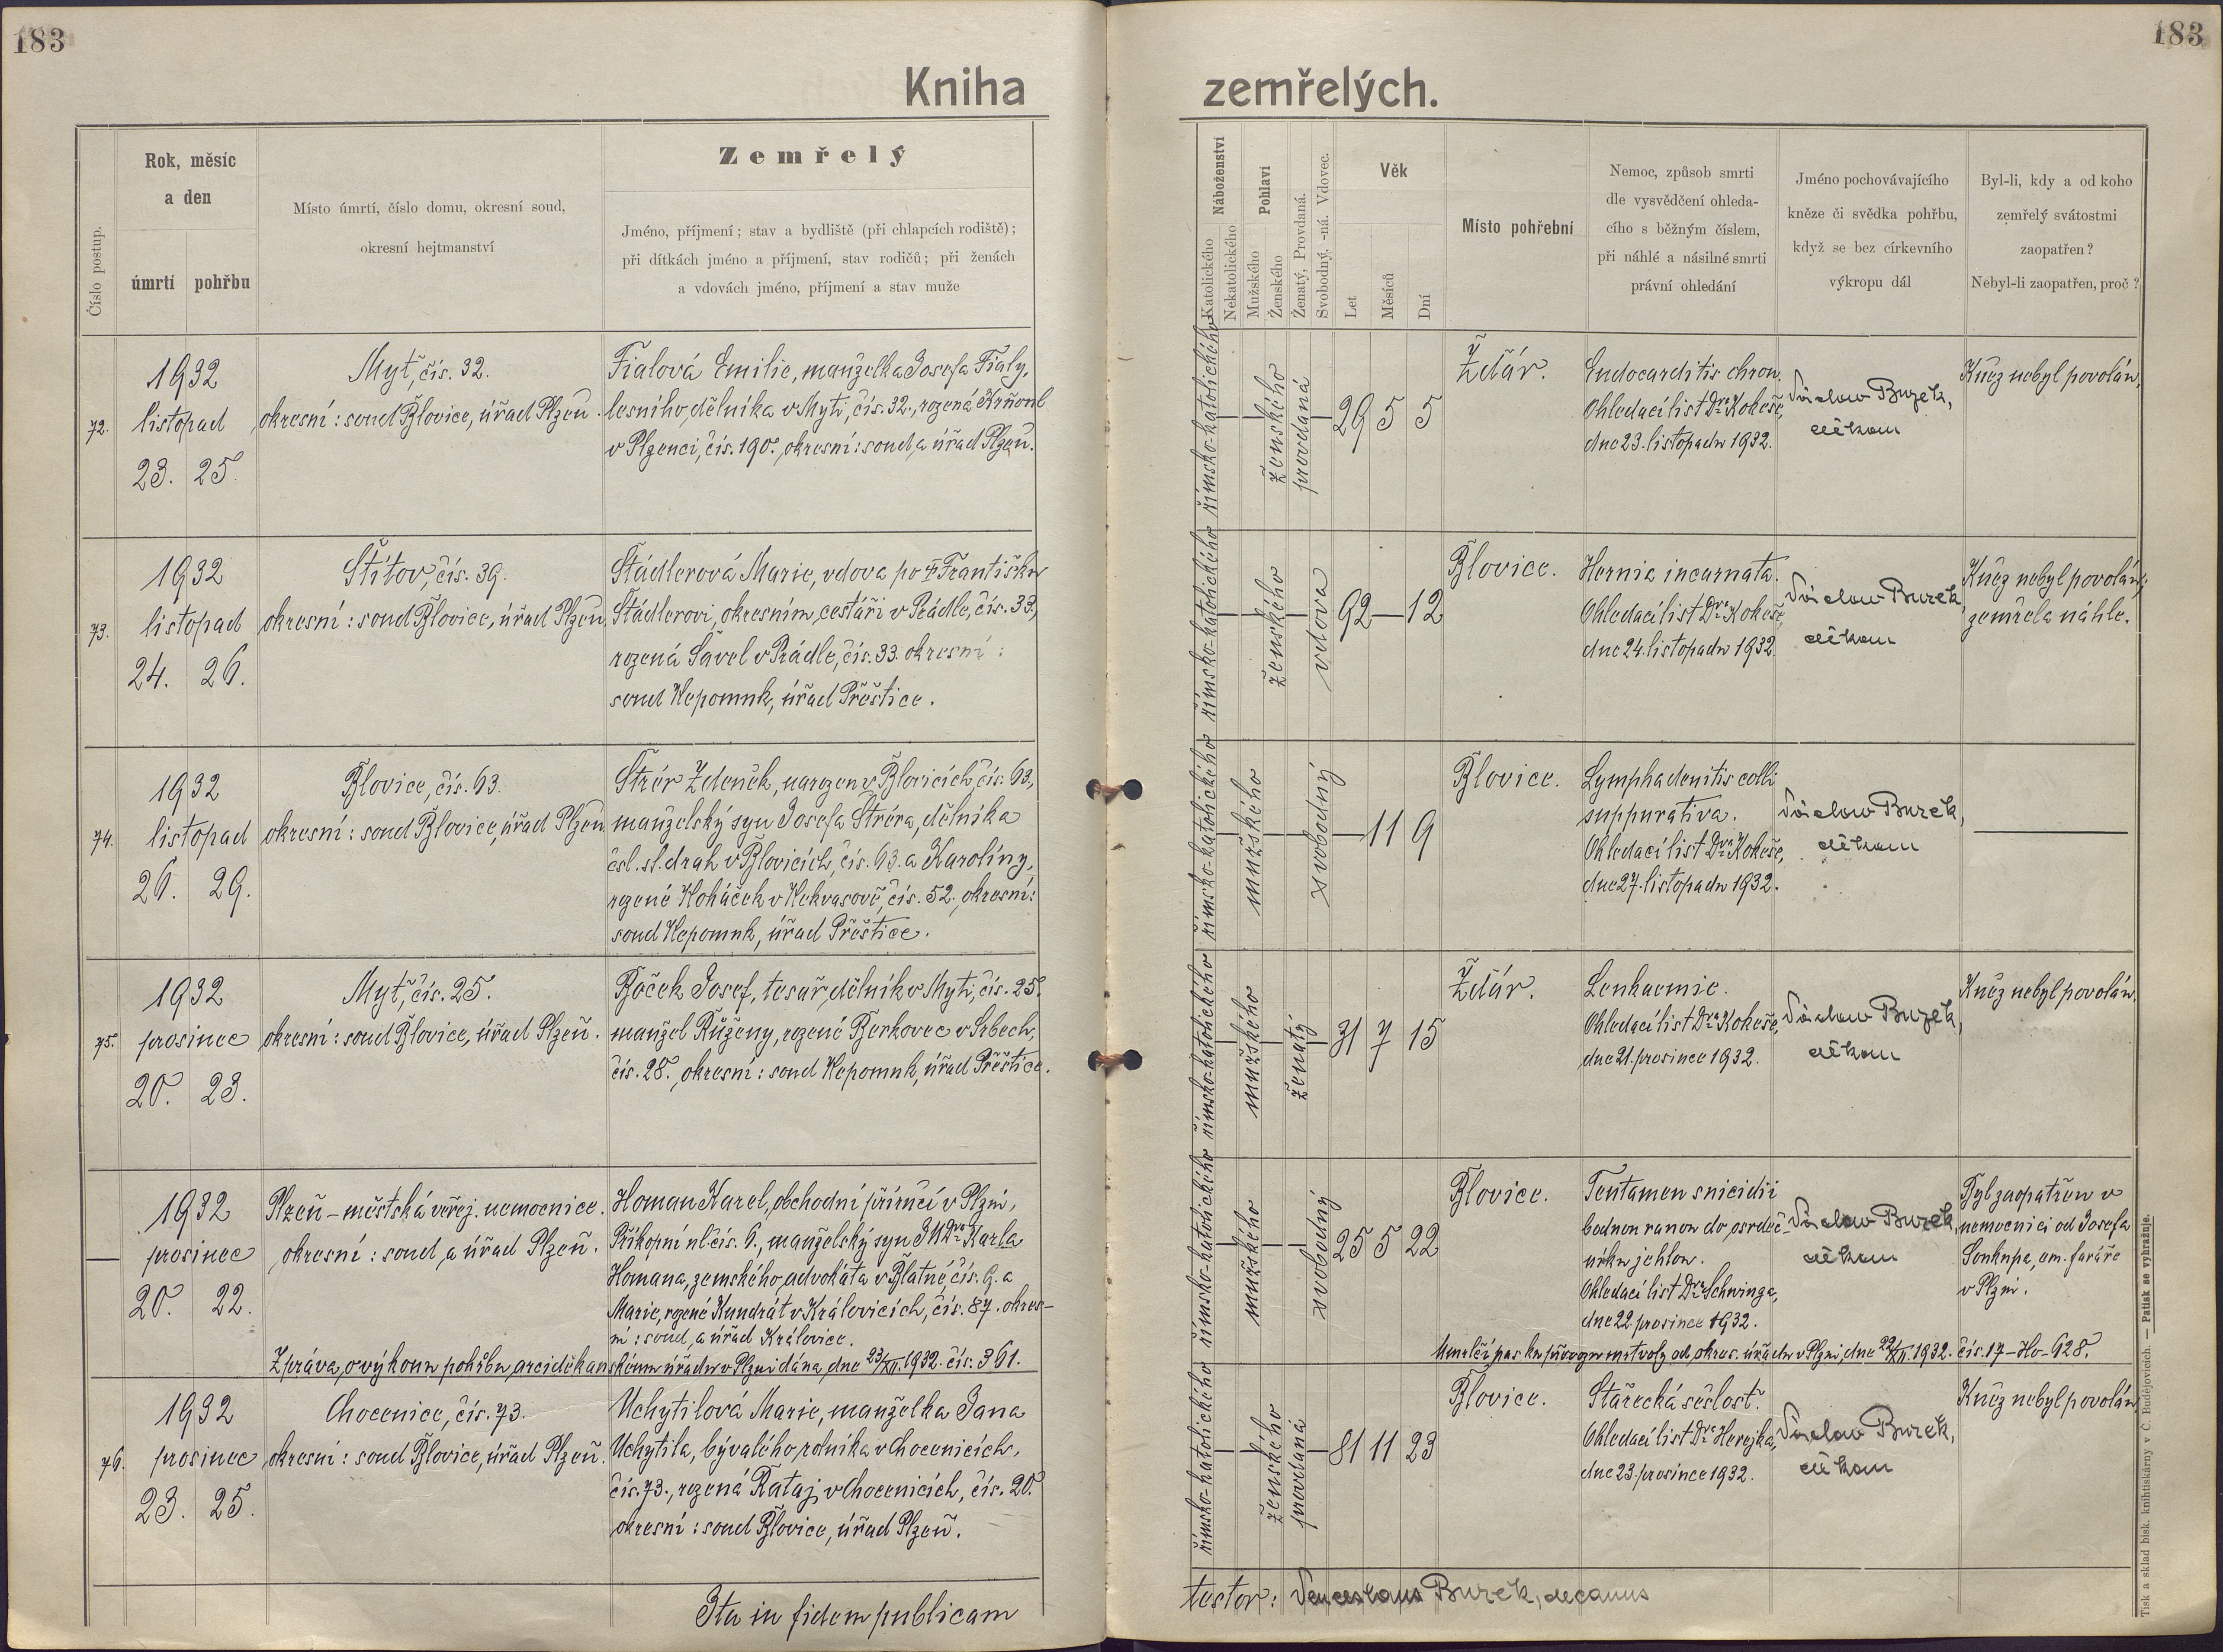 183
183
Kniha zemřelých.
Číslo postup.
Rok, měsíc
a den
úmrtí pohřbu
Místo úmrtí, číslo domu, okresní soud,
okresní hejtmanství
Zemřelý
Jméno, příjmení; stav a bydliště (při chlapcích rodiště);
při dítkách jméno a příjmení, stav rodičů; při ženách
a vdovách jméno, příjmení a stav muže
Náboženství
Katolického
Nekatolického
Pohlaví
Mužského
Ženského
Ženatý, Provdaná.
Svobodný, -ná. Vdovec.
Věk
Let
Měsíců
Dní
Místo pohřební
Nemoc, způsob smrti
dle vysvědčení ohleda-
cího s běžným číslem,
při náhlé a násilné smrti
právní ohledání
Jméno pochovávajícího
kněze či svědka pohřbu,
když se bez církevního
výkropu dál
Byl-li, kdy a od koho
zemřelý svátostmi
zaopatřen?
Nebyl-li zaopatřen, proč?
72.
1932
listopad
23. 25.
Myť, čís. 32.
okresní: soud Blovice, úřad Plzeň.
Fialová Emilie, manželka Josefa Fialy,
lesního dělníka v Myti, čís. 32., rozená Krňoul
v Plzenci, čís. 190., okresní: soud a úřad Plzeň.
římsko-katolického
ženského
provdaná
29 5 5
Žďár.
Endocarditis chron.
Ohledací list Dra Kokeše,
dne 23. listopadu 1932.
Václav Burek,
děkan
Kněz nebyl povolán.
73.
1932
listopad
24. 26.
Štítov, čís. 39.
okresní: soud Blovice, úřad Plzeň.
Štádlerová Marie, vdova po † Františku
Štádlerovi, okresním cestáři v Prádle, čís. 33.,
rozená Šavel v Prádle, čís. 33. okresní:
soud Nepomuk, úřad Přeštice.
římsko-katolického
ženského
vdova
92 — 12
Blovice.
Hernia incarnata.
Ohledací list Dra Kokeše,
dne 24. listopadu 1932.
Václav Burek,
děkan
Kněz nebyl povolán;
zemřela náhle.
74.
1932
listopad
26. 29.
Blovice, čís. 63.
okresní: soud Blovice, úřad Plzeň.
Strér Zdeněk, narozen v Blovicích, čís. 63.,
manželský syn Josefa Stréra, dělníka
čsl. st. drah v Blovicích, čís. 63. a Karolíny,
rozené Koháček v Nekvasově, čís. 52., okresní:
soud Nepomuk, úřad Přeštice.
římsko-katolického
mužského
svobodný
— 11 9
Blovice.
Lymphadenitis colli
suppurativa.
Ohledací list Dra Kokeše,
dne 27. listopadu 1932.
Václav Burek,
děkan
75.
1932
prosinec
20. 23.
Myť, čís. 25.
okresní: soud Blovice, úřad Plzeň.
Bůček Josef, tesař, dělník v Myti, čís. 25.
manžel Růženy, rozené Berkovec v Srbech,
čís. 28., okresní: soud Nepomuk, úřad Přeštice.
římsko-katolického
mužského
ženatý
31 7 15
Žďár.
Leukaemie.
Ohledací list Dra Kokeše,
dne 21. prosince 1932.
Václav Burek,
děkan
Kněz nebyl povolán.
—
1932
prosinec
20. 22.
Plzeň – městská veřej. nemocnice.
okresní: soud a úřad Plzeň.
Homan Karel, obchodní příručí v Plzni,
Příkopní ul. čís. 6., manželský syn JUDra Karla
Homana, zemského advokáta v Blatné, čís. 9. a
Marie, rozené Kundrát v Královicích, čís. 87. okres-
ní: soud a úřad Královice.
Zpráva o výkonu pohřbu arciděkanskému úřadu v Plzni dána dne 23/XII. 1932. čís. 361.
římsko-katolického
mužského
svobodný
25 5 22
Blovice.
Tentamen suicidii
bodnou ranou do osrdeč-
níku jehlou.
Ohledací list Dra Schwinga,
dne 22. prosince 1932.
Václav Burek,
děkan
Byl zaopatřen v
nemocnici od Josefa
Soukupa, em. faráře
v Plzni.
Umrlčí pas ku převozu mrtvoly od okres. úřadu v Plzni, dne 22/XII. 1932. čís. 17 – Ho – 628.
76.
1932
prosinec
23. 25.
Chocenice, čís. 73.
okresní: soud Blovice, úřad Plzeň.
Uchytilová Marie, manželka Jana
Uchytila, bývalého rolníka v Chocenicích,
čís. 73., rozená Rataj v Chocenicích, čís. 20.
okresní: soud Blovice, úřad Plzeň.
římsko-katolického
ženského
provdaná
81 11 23
Blovice.
Stařecká sešlost.
Ohledací list Dra Herejka,
dne 23. prosince 1932.
Václav Burek,
děkan
Kněz nebyl povolán
Ita in fidem publicam
testor: Venceslaus Burek, decanus
Tisk a sklad bisk. knihtiskárny v Č. Budějovicích. — Patisk se vyhražuje.